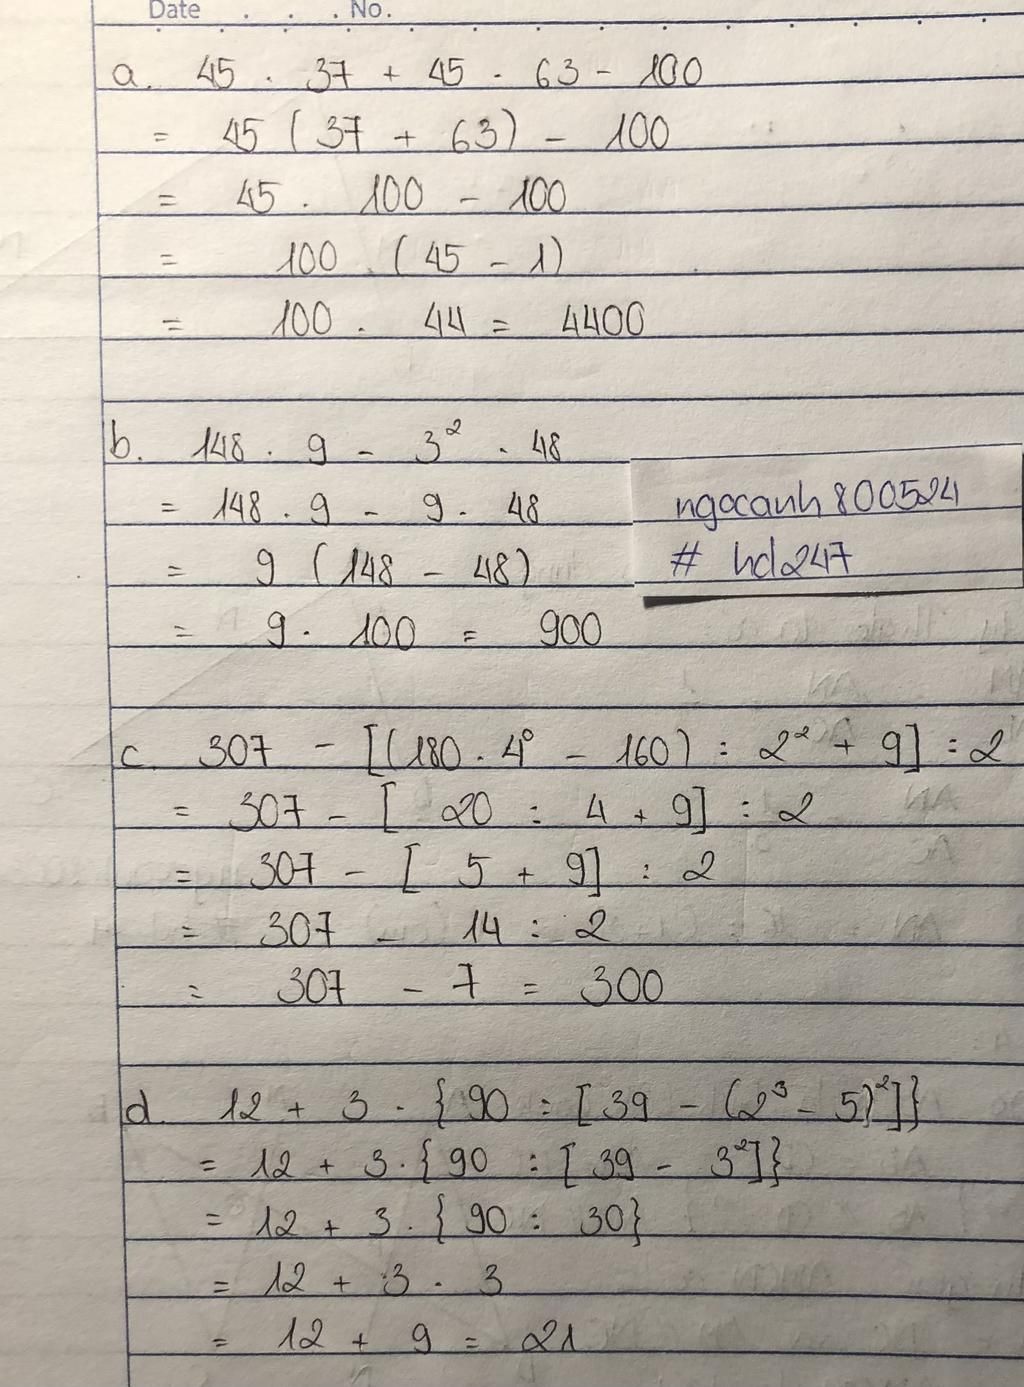 Date . . . No.
a. 45 . 37 + 45 . 63 - 100
= 45 (37 + 63) - 100
= 45 . 100 - 100
= 100 . (45 - 1)
= 100 . 44 = 4400
b. 148 . 9 - 3² . 48
= 148 . 9 - 9 . 48
= 9 (148 - 48)
= 9 . 100 = 900
ngocanh800524
# hd247
c. 307 - [(180 . 4⁰ - 160) : 2² + 9] : 2
= 307 - [ 20 : 4 + 9] : 2
= 307 - [ 5 + 9] : 2
= 307 - 14 : 2
= 307 - 7 = 300
d. 12 + 3 . {90 : [39 - (2³ - 5)²]}
= 12 + 3 . {90 : [39 - 3²]}
= 12 + 3 . {90 : 30}
= 12 + 3 . 3
= 12 + 9 = 21